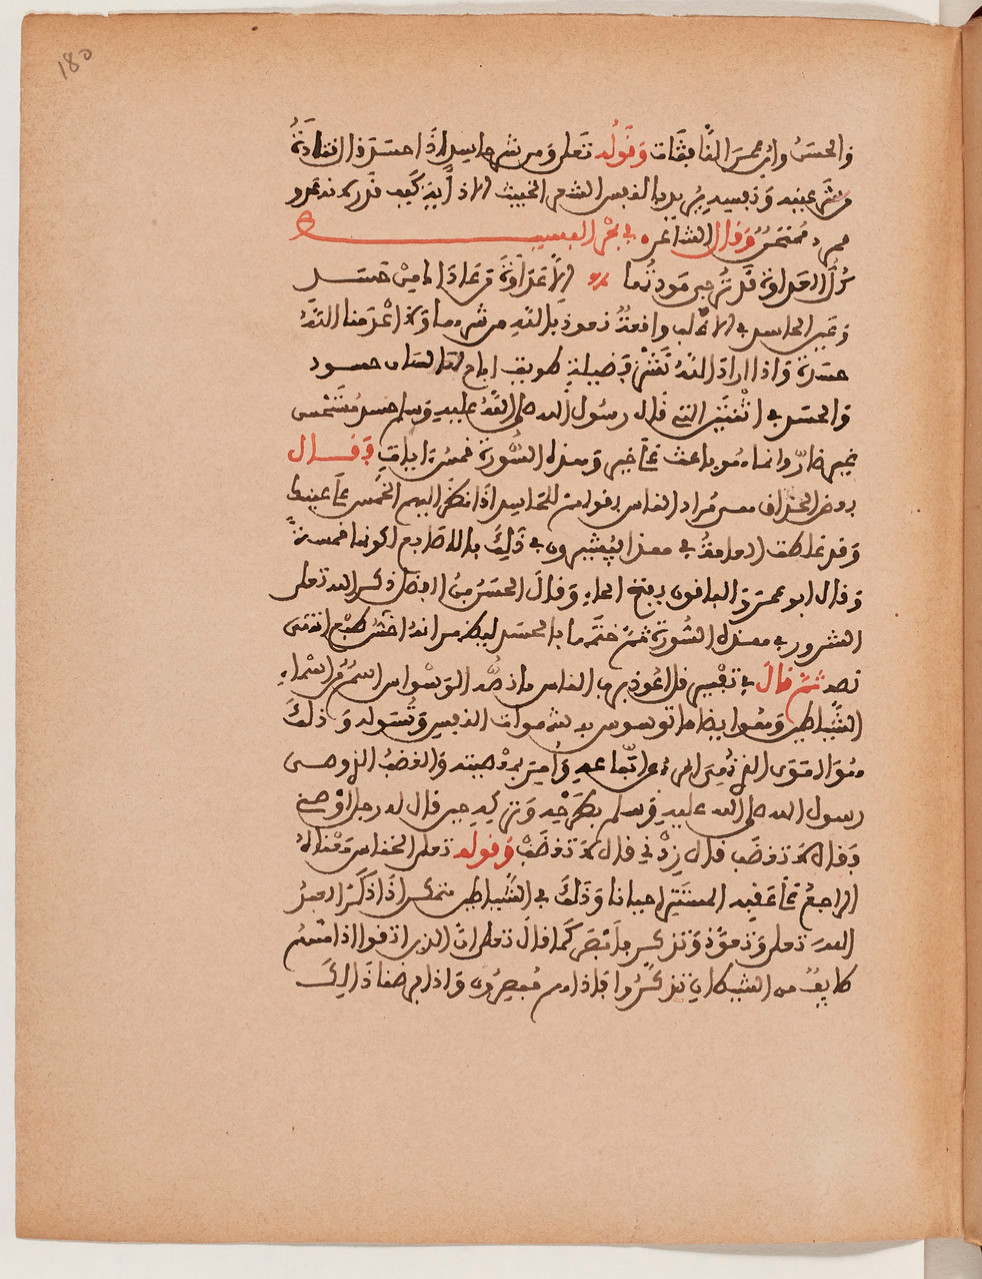 180
والحسن وابن محصن النافثات وقوله تعلى ومن شر حاسد اذا حسد قال قتادة
من شر عينه ونفسه يريد بالنفس السعي الخبيث الاذاية كيف قدر لانه عدو
مجد ممتحن وقال الشاعر في بحر البسيط
كل العداوة قد ترجى مودتها الا عداوة من عاداك من حسد
وعين الحاسد في الاغلب واقعة نعوذ بالله من شرها ولا اعدمنا الله
حسدة واذا اراد الله نشر فضيلة طويت اتاح لها لسان حسود
والحسد في اثنتين التي قال رسول الله صلى الله عليه وسلم حسد مستحسن
غير ضار وانما هو باعث على خير وهذه السورة خمس ايات وقال
بعض الحذاق معنى مراد الناس بقولهم للحاسد اذا نظر اليهم الخمس على عينيك
وقد غلطت العامة في هذا فيشيرون في ذلك بالاصابع لكونها خمسة
وقال ابو عمرو والباقون بفتح الحاء وقال الحسن بن الفضل ذكر الله تعلى
الشرور في هذه السورة ثم ختمها بالحسد ليظهر انه اخس طبع انتهى
نصه ثم قال في تفسير قل اعوذ برب الناس ما نصه الوسواس اسم من اسماء
الشيطان وهو ايضا ما توسوس به شهوات النفس وتسوله وذلك
هو الهوى الذي نهي المرء عن اتباعه وامر بمعصيته والغضب الذي وصى
رسول الله صلى الله عليه وسلم بطرحه وتركه حين قال له رجل اوصني
فقال لا تغضب قال زدني قال لا تغضب وقوله تعلى الخناس معناه
الراجع على عقبه المستتر احيانا وذلك في الشيطان متمكن اذا ذكر العبد
الله تعلى وتعوذ وتذكر فابصر كما قال تعلى ان الذين اتقوا اذا مسهم
طايف من الشيطان تذكروا فاذا هم مبصرون واذا فرضنا ذالك